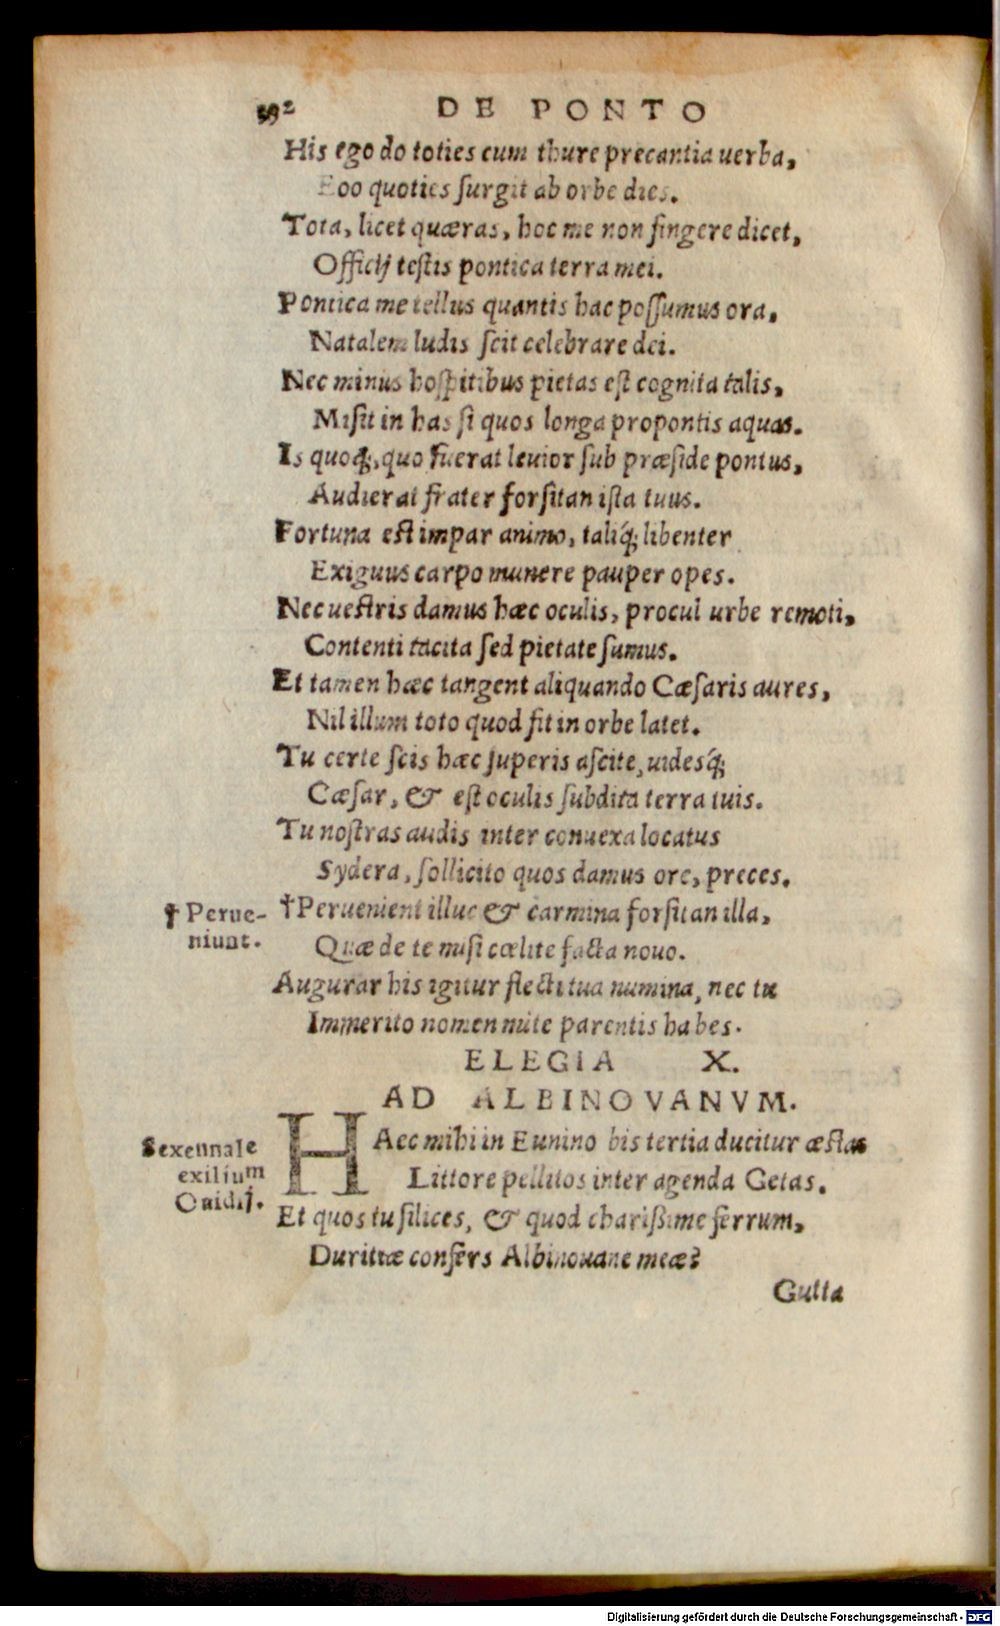 DE PONTO
His ego do toties cum thure precantia uerba,
Eoo quoties ſurgit ab orbe dies.
Tota, licet quæras, hoc me non fingere dicet,
Officij teſtis pontica terra mei.
Pontica me tellus quantis hac poſſumus ora,
Natalem ludis ſcit celebrare dei.
Nec minus hoſpitibus pietas eſt cognita talis,
Miſit in has ſi quos longa propontis aquas.
Is quoq;, quo fuerat leuior ſub præſide pontus,
Audierat frater forſitan iſta tuus.
Fortuna eſt impar animo, taliq́; libenter
Exiguus carpo munere pauper opes.
Nec ueſtris damus hæc oculis, procul urbe remoti,
Contenti tacita ſed pietate ſumus.
Et tamen hæc tangent aliquando Cæſaris aures,
Nil illum toto quod fit in orbe latet.
Tu certe ſcis hæc ſuperis aſcite, uidesq́;
Cæſar, & eſt oculis ſubdita terra tuis.
Tu noſtras audis inter conuexa locatus
Sydera, ſollicito quos damus ore, preces.
† Perue-
niunt.
†Peruenient illuc & carmina forſitan illa,
Quæ de te miſi cœlite facta nouo.
Augurar his igitur flecti tua numina, nec tu
Immerito nomen mite parentis habes.
ELEGIA X.
AD ALBINOVANVM.
Sexennale
exilium
Ouidij.
HAec mihi in Eunino bis tertia ducitur æſtas
Littore pellitos inter agenda Getas.
Et quos tu ſilices, & quod chariſsime ferrum,
Duritiæ confers Albinouane meæ?
Gutta
Digitalisierung gefördert durch die Deutsche Forschungsgemeinschaft - DFG